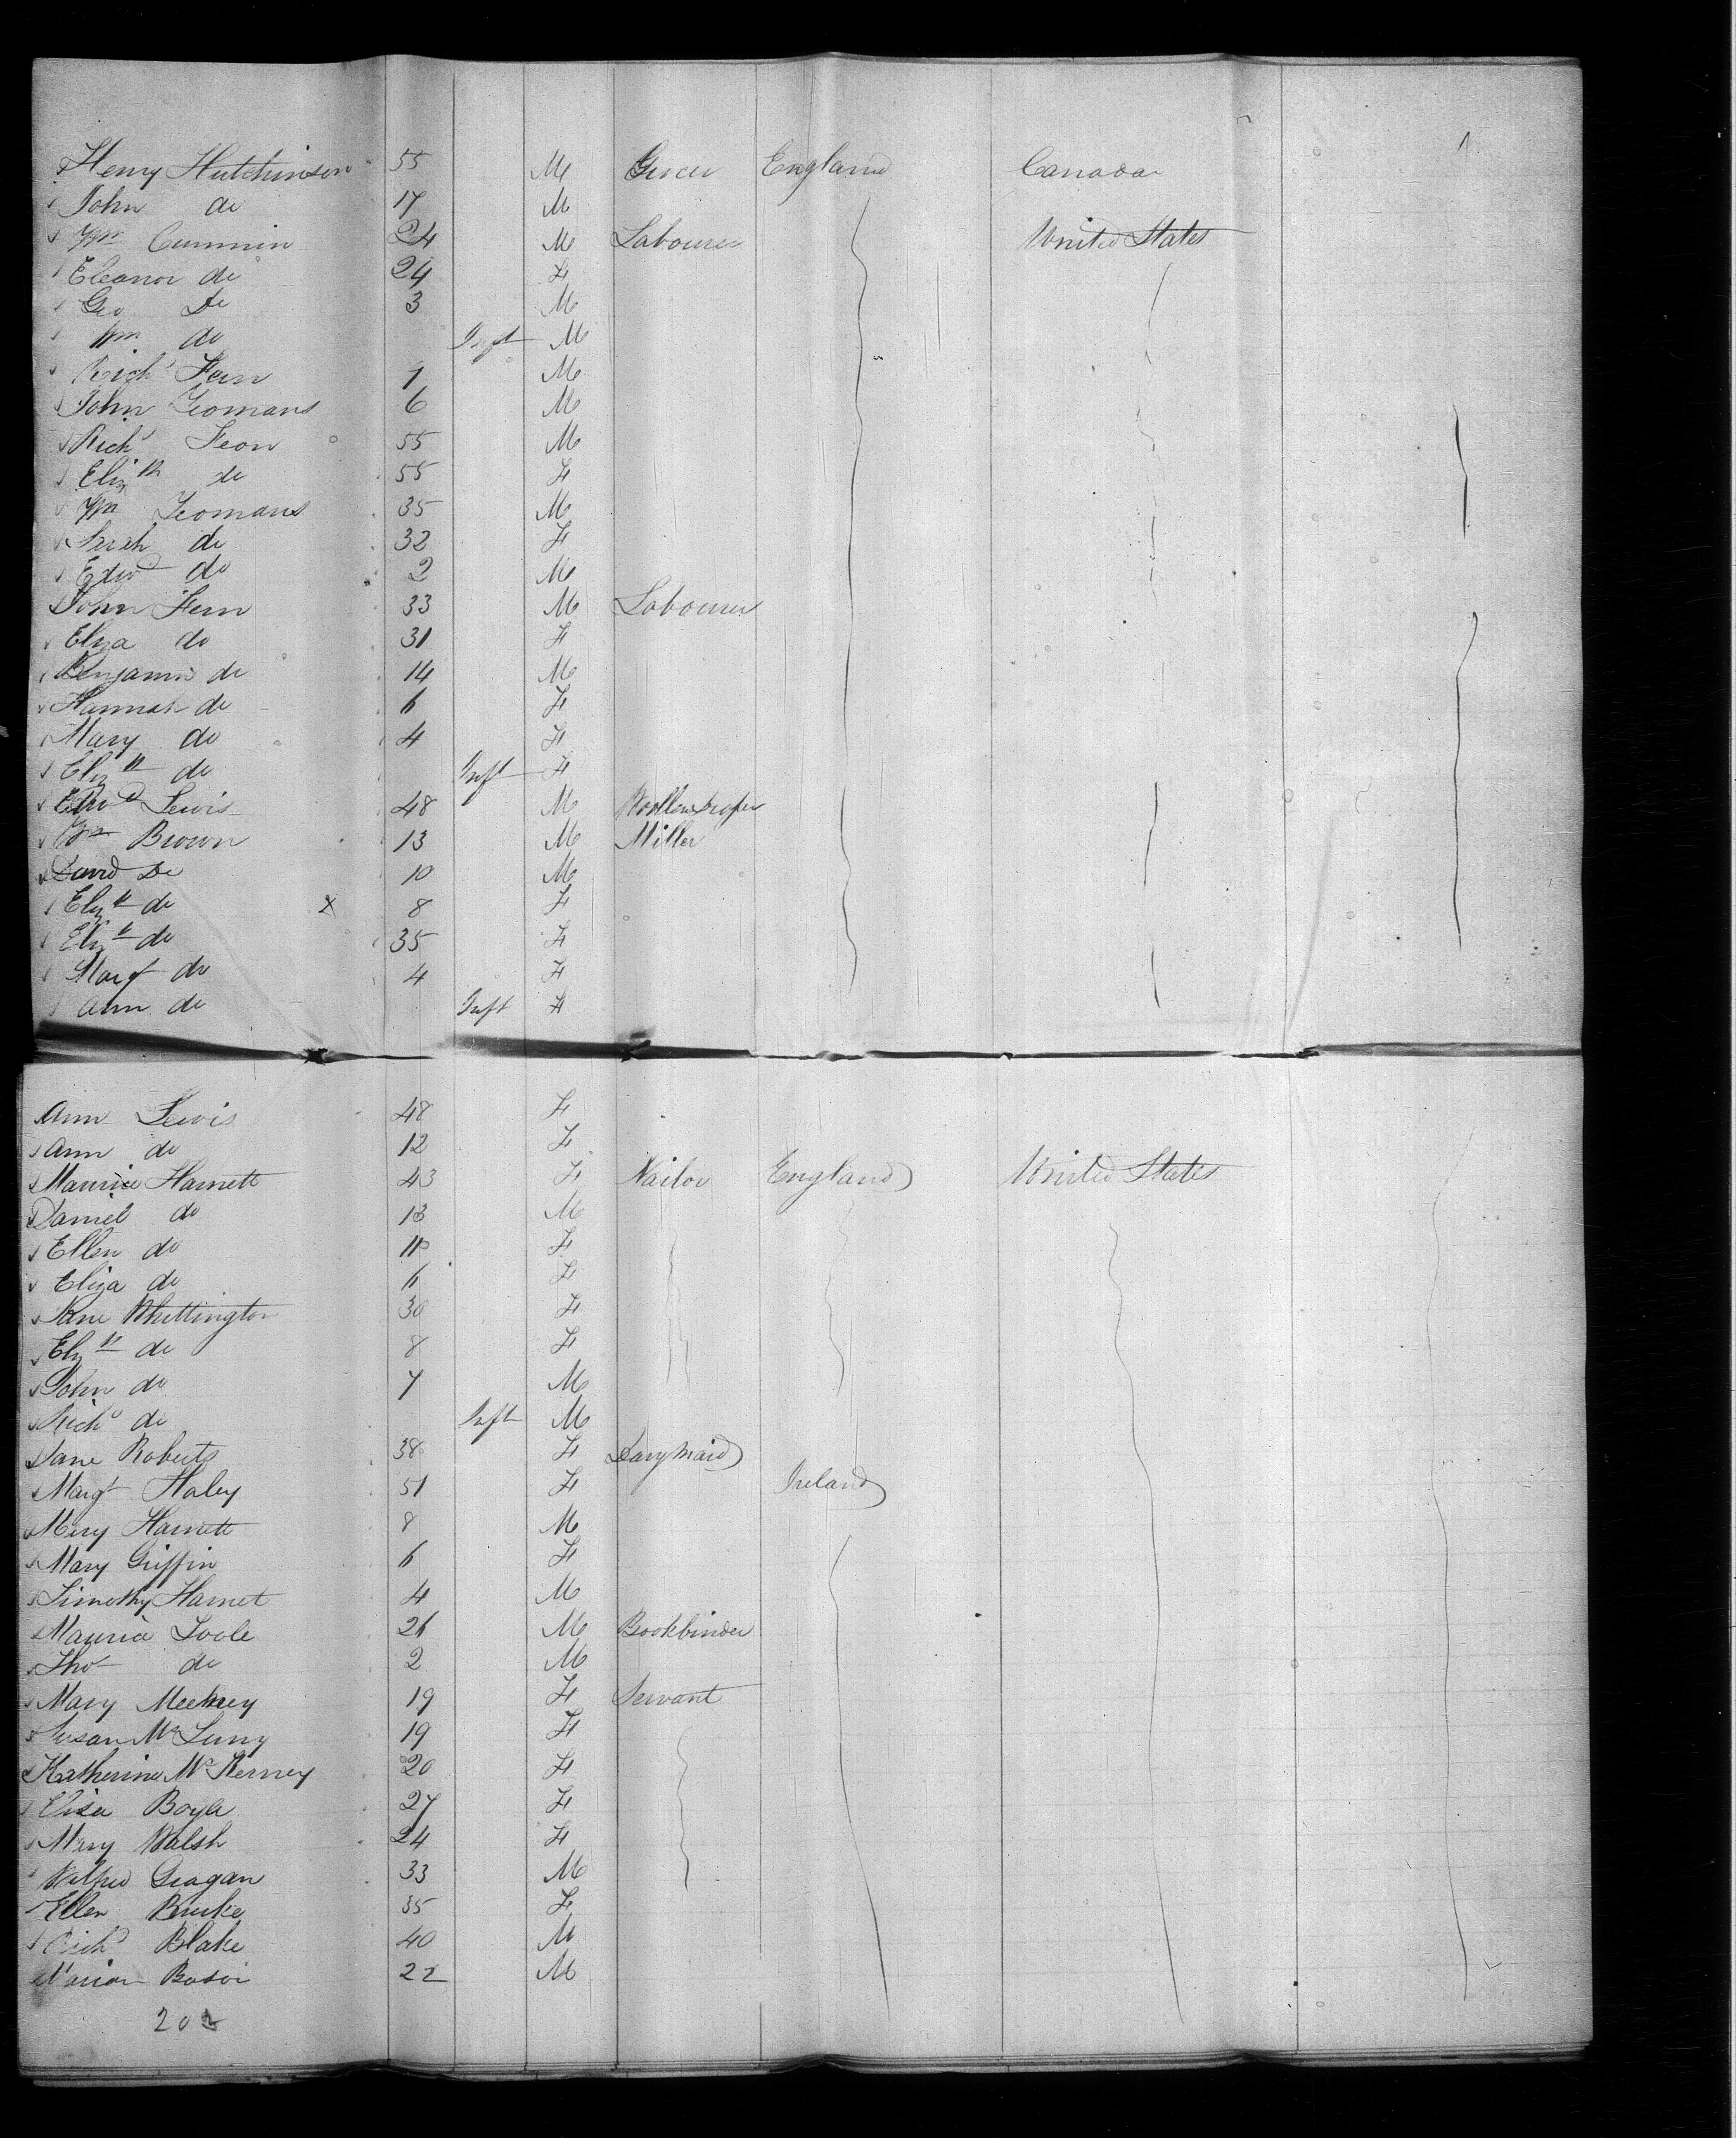 Henry Hutchinson 55 M Grocer England Canada
John do 17 M
Wm Cummin 24 M Labourer United States
Eleanor do 24 F
Geo Do 3 M
Wm do Inft M
Richd Fern 1 M
John Yeomans 6 M
Richd Feon 55 M
Elizth do 55 F
Wm Yeomans 35 M
Sarah do 32 F
Edwd do 2 M
John Fern 33 M Labourer
Eliza do 31 F
Benjamin do 14 M
Hannah do 6 F
Mary do 4 F
Elizth do Inft F
Edwd Lewis 48 M Woollen
Wm Brown 13 M Miller
David Do 10 M
Elizth do X 8 F
Elizth do 35 F
Margt do 4 F
Ann do Inft F
Ann Lewis 48 F
Ann do 12 F
Maurice Harnett 43 F Nailor England United States
Daniel do 13 M
Ellen do F
Eliza do 6 F
Jane Whittington 30 F
Elizth do 8 F
John do 7 M
Richd do Inft M
Jane Roberts 38 F Dary Maid
Margt Haley 51 F Ireland
Mary Harnett 8 M
Mary Griffin 6 F
Timothy Harnet 4 M
Maurice Toole 26 M Bookbinder
Tho do 2 M
Mary 19 F Servant
Susan Mc 19 F
Katherine Mc Kerney 20 F
Eliza Boyle 27 F
Mary Walsh 24 F
Geagan 33 M
Ellen Burke 35 F
Richd Blake 40 M
22 M
202